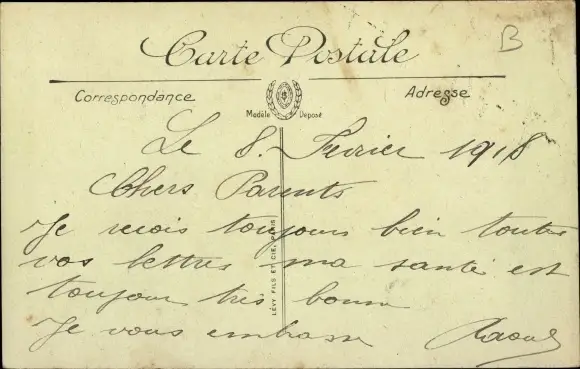 Carte Postale
B
Correspondance
Adresse
Modèle Déposé
Le 8. Fevrier 1918
Chers Parents
Je recois toujours bien toutes
vos lettres ma santé est
toujour très bonne
Je vous embrasse Raoul
LÉVY FILS ET CIE, PARIS